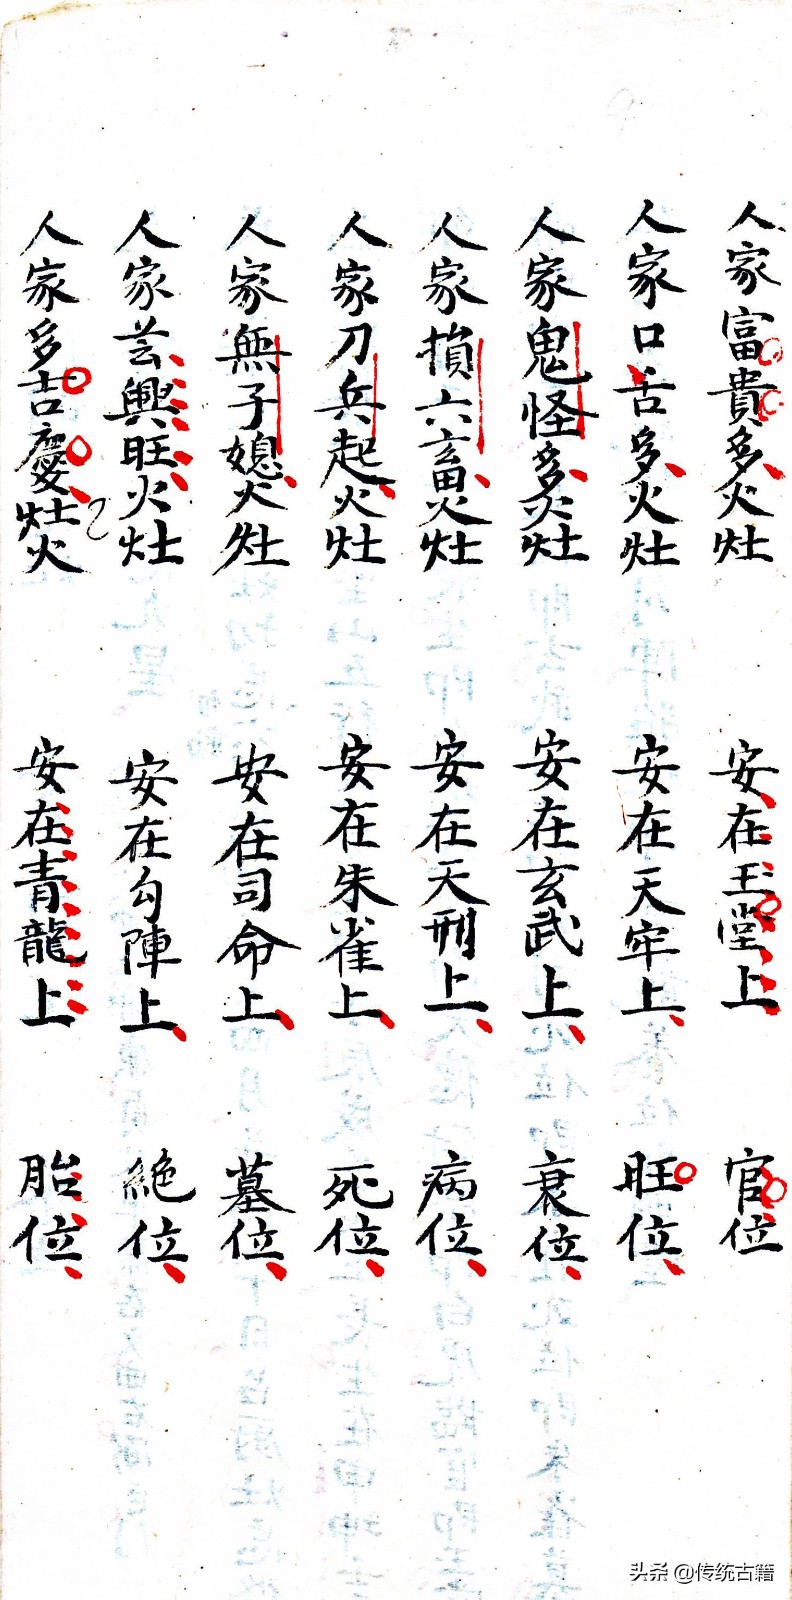 人家富貴多火灶　安在玉堂上　官位
人家口舌多火灶　安在天牢上　旺位
人家鬼怪多火灶　安在玄武上　衰位
人家損六畜火灶　安在天刑上　病位
人家刀兵起火灶　安在朱雀上　死位
人家無子媳火灶　安在司命上　墓位
人家芸興旺火灶　安在勾陣上　絶位
人家多吉慶灶火　安在青龍上　胎位
头条 @传统古籍